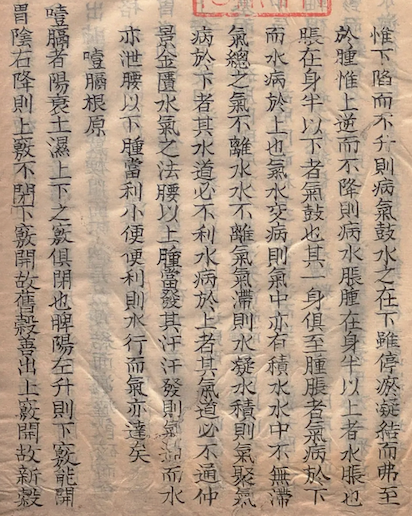 惟下陷而不升則病氣鼓水之在下雖停瘀凝結而弗至
於腫惟上逆而不降則病水脹腫在身半以上者水脹也
脹在身半以下者氣鼓也其一身俱至腫脹者氣病於下
而水病於上也氣水交病則氣中亦有積水水中不無滯
氣總之氣不離水水不離氣氣滯則水凝水積則氣聚氣
病於下者其水道必不利水病於上者其氣道必不通仲
景金匱水氣之法腰以上腫當發其汗汗發則氣而水
亦泄腰以下腫當利小便便利則水行而氣亦達矣
噎膈根原
噎膈者陽衰土濕上下之竅俱閉也脾陽左升則下竅能開
胃陰右降則上竅不閉下竅開故舊穀善出上竅開故新穀